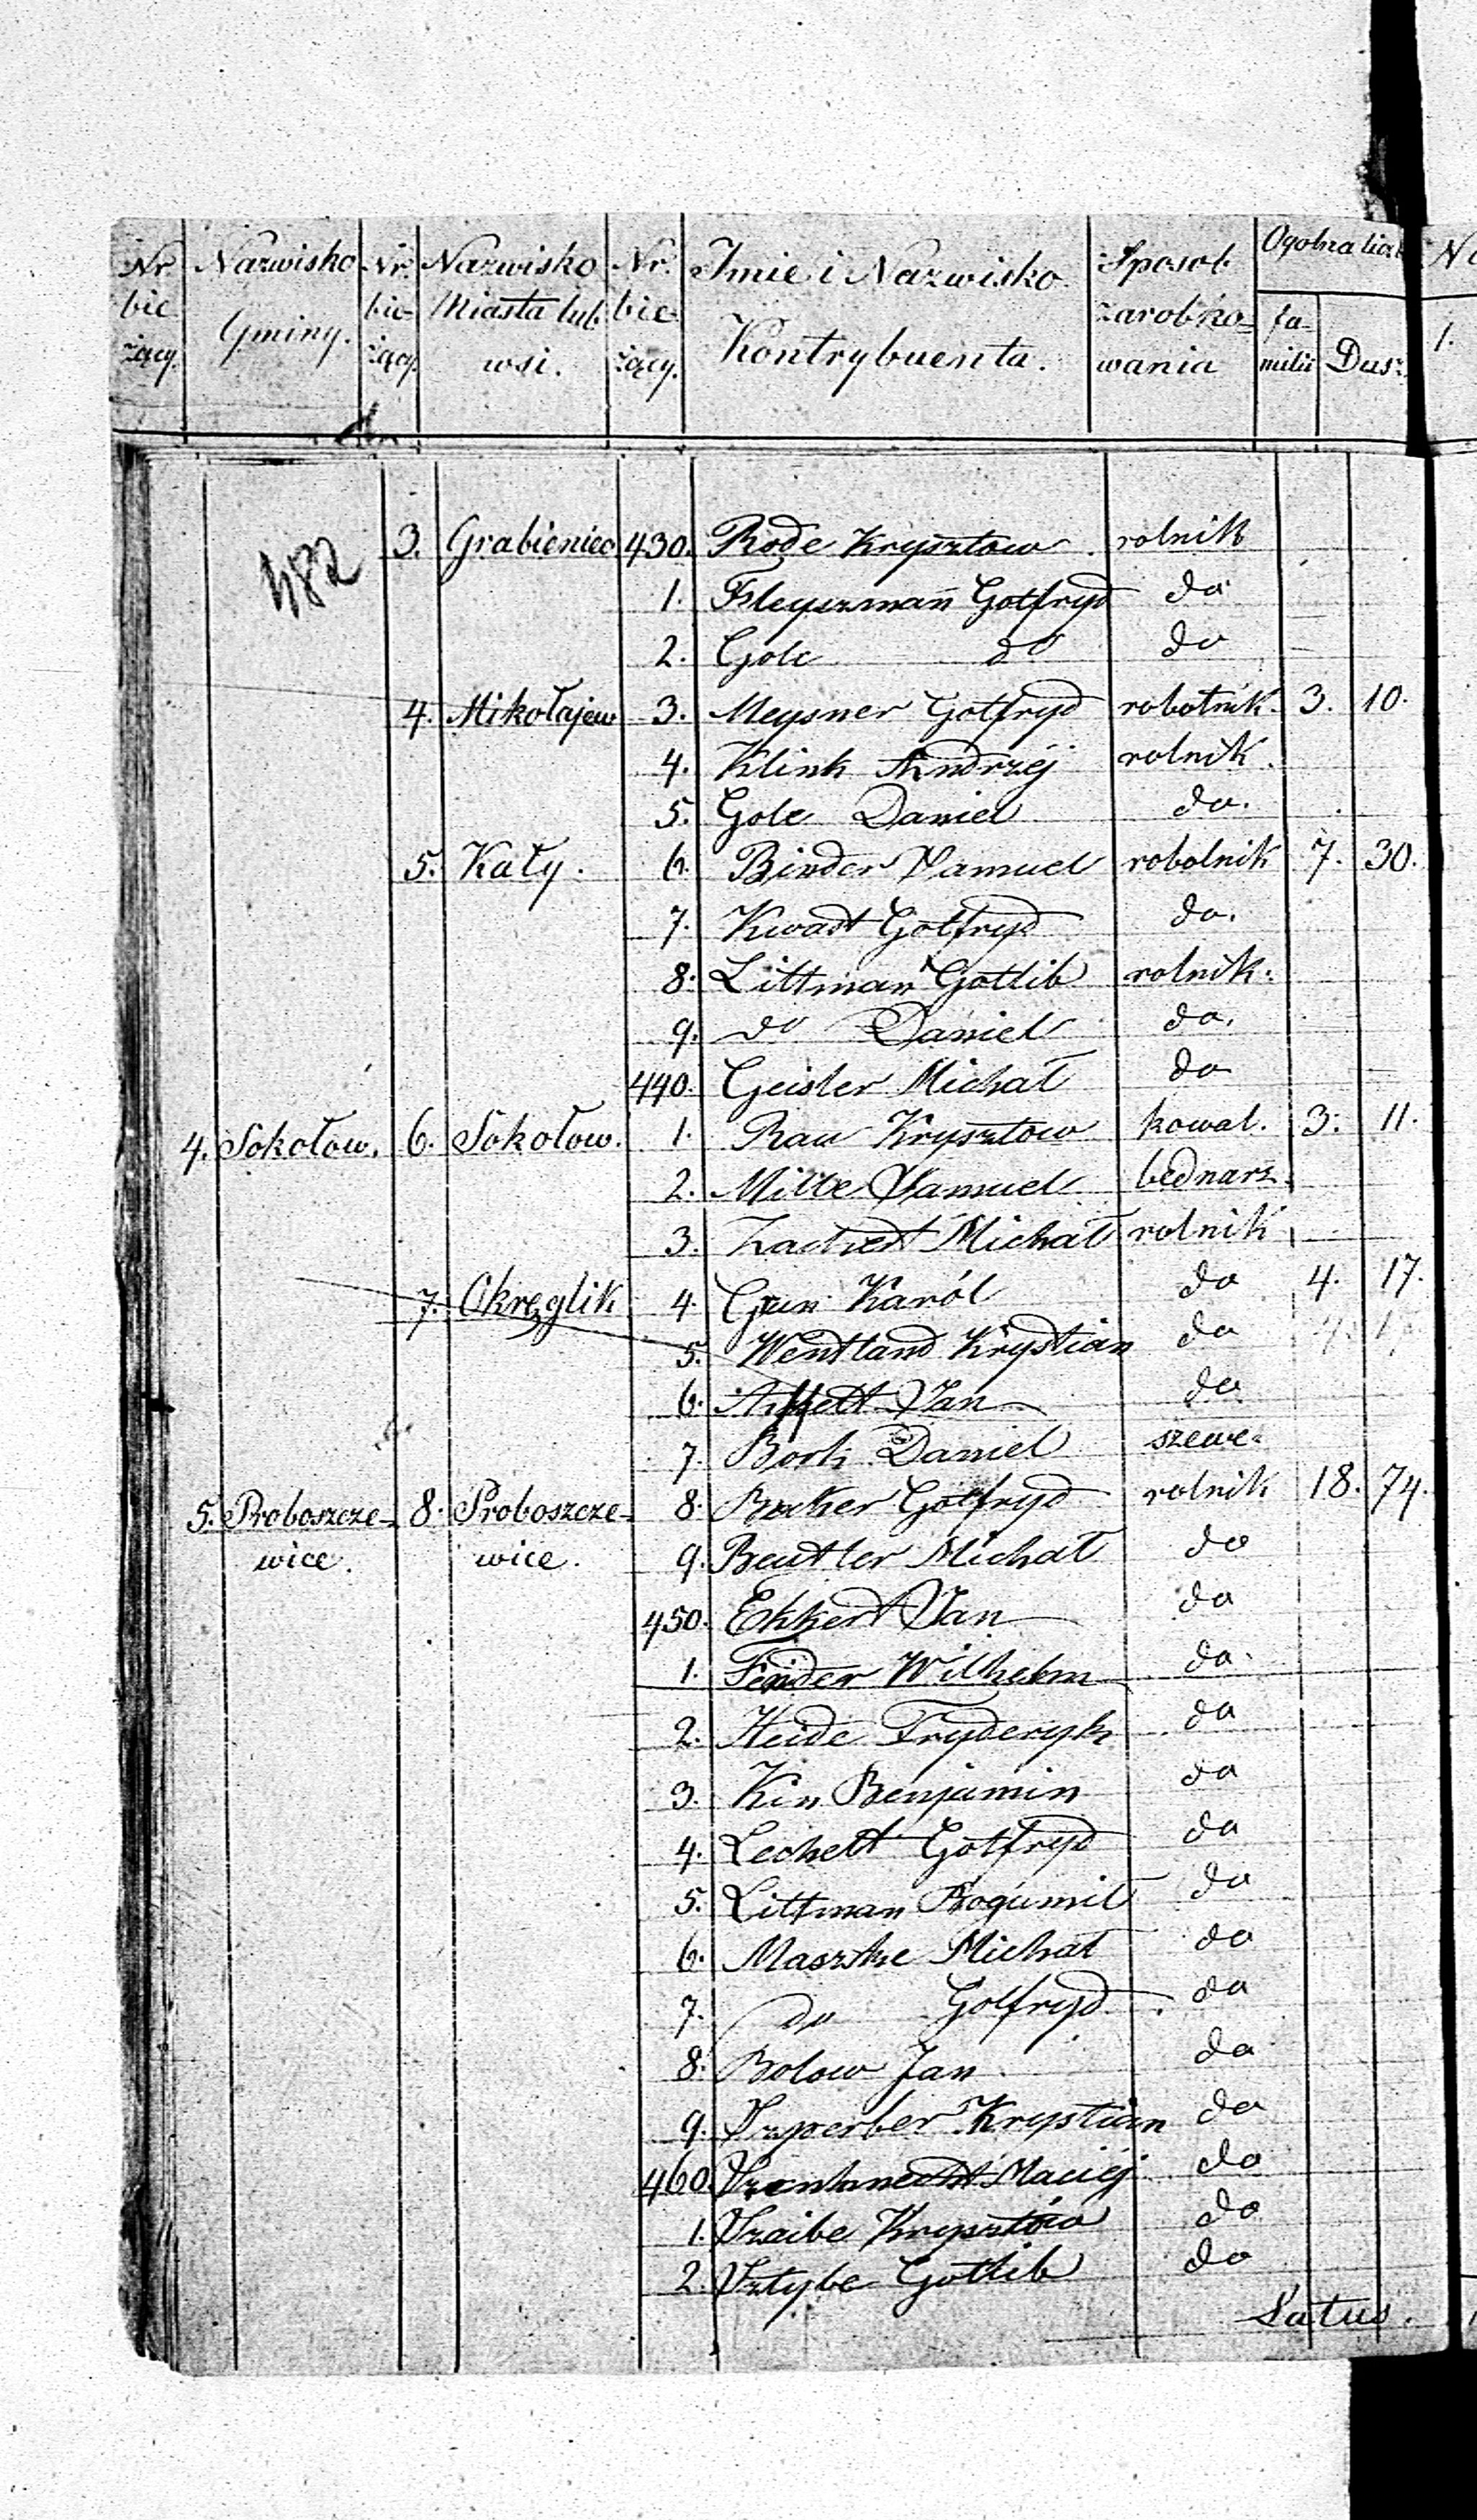 Nr bie żący. Nazwisko Gminy. Nr. bie- żący Nazwisko Miasta lub wsi. Nr. bie- żący. Imie i Nazwisko Kontrybuenta. Sposob zarobko= wania Ogolna licz fa- milii Dusz 1.
482
3. Grabieniec 430. Rode Krysztow. rolnik
1. Fleyszman Gotfryd do
2. Golc do do
4. Mikołajew 3. Meysner Gotfryd robotnik. 3. 10.
4. Klink Andrzéj rolnik.
5. Golc Daniel do.
5. Kały. 6. Binder Samuel robotnik 7. 30.
7. Kwast Gotfryd do.
8. Littman Gotlib rolnik.
9. do Daniel do.
440. Geisler Michał do
4. Sokołow. 6. Sokołow. 1. Rau Krysztow kowal. 3. 11.
2. Milbe Samuel bednarz.
3. Zachert Michał rolnik
7. Okręglik 4. Karól do 4. 17.
5. Wentland Krystian do
6. Jan do
7. Bork Daniel szewc
5. Proboszcze- 8. Proboszcze- 8. Gotfryd rolnik 18. 74.
wice. wice. 9. Beutler Michał do
450. Ekkert Jan do
1. Fender Wilhelm do.
2. Heide Fryderyk do
3. Kin Benjamin do
4. Lechelt Gotfryd do
5. Littman Bogumił do
6. Maszke Michał do
7. do Gotfryd. do
8. Bolow Jan do
9. Szperber Krystian do
460. Maciéj do
1. Szaibe Krysztow do
2. Sztybe Gotlib do
Latus.